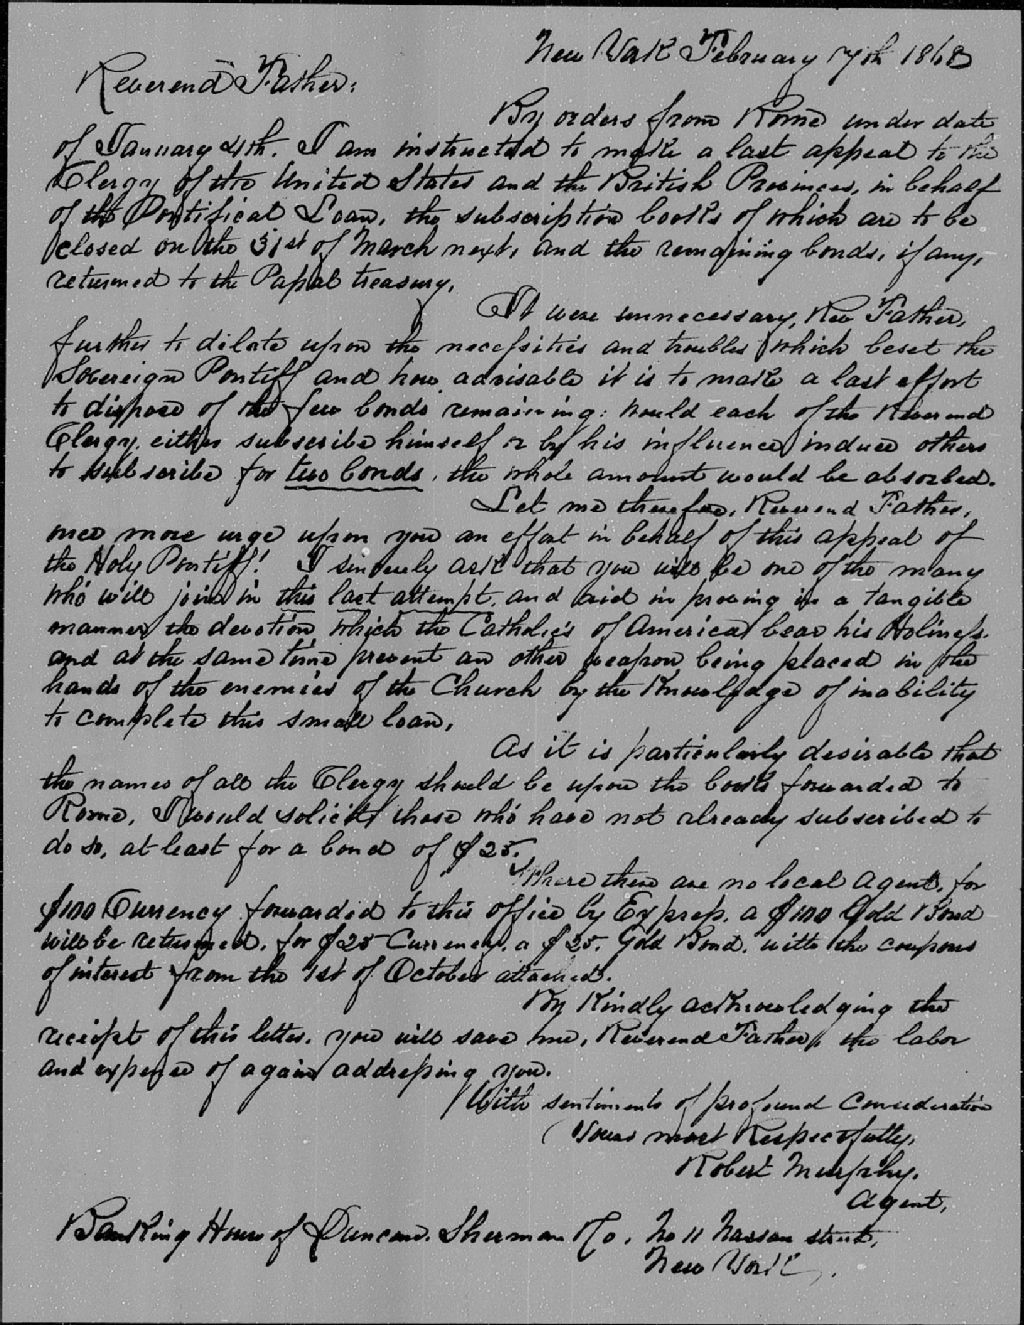 New York February 7th 1868
Reverend Father:
By orders from Rome under date
of January 4th. I am instructed to make a last appeal to the
Clergy of the United States and the British Provinces, in behalf
of the Pontifical Loan, the subscription books of which are to be
closed on the 31st of March next, and the remaining bonds, if any,
returned to the Papal treasury.
It were unnecessary, Rev Father,
further to dilate upon the necessities and troubles which beset the
Sovereign Pontiff and how advisable it is to make a last effort
to dispose of the few bonds remaining: would each of the Reverend
Clergy either subscribe himself or by his influence induce others
to subscribe for two bonds, the whole amount would be absorbed.
Let me therefore, Reverend Father,
once more urge upon you an effort in behalf of this appeal of
the Holy Pontiff! I sincerely ask that you will be one of the many
who will join in this last attempt, and aid in proving in a tangible
manner, the devotion which the Catholics of America bear his Holiness
and at the same time prevent an other weapon being placed in the
hands of the enemies of the Church by the Knowledge of inability
to complete this small loan.
As it is particularly desirable that
the names of all the Clergy should be upon the books forwarded to
Rome, I would solicit those who have not already subscribed to
do so, at least for a bond of $25.
Where there are no local Agent, for
$100 Currency forwarded to this office by Express, a $100 Gold Bond
will be returned, for $25 Currency, a $25. Gold Bond, with the coupons
of interest from the 1st of October attached.
By Kindly acknowledging the
receipt of this letter, you will save me, Reverend Father, the labor
and expense of again addressing you.
With sentiments of profound Consideration
Yours most Respectfully,
Robert Murphy.
Agent,
Banking House of Duncan, Sherman & Co, No 11 Nassau street,
New York.